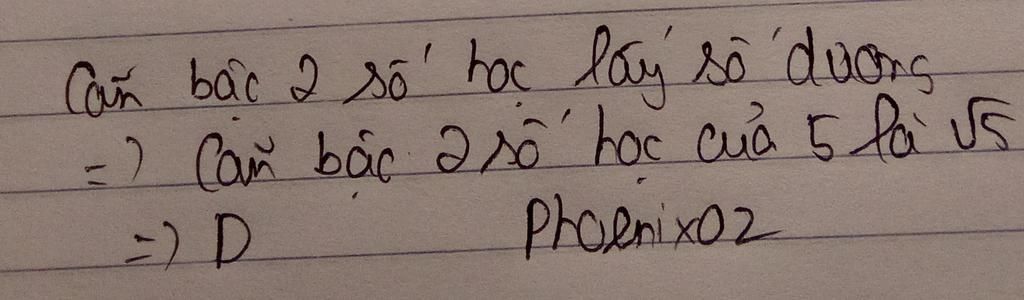 Căn bậc 2 số học lấy số dương
=> Căn bậc 2 số học của 5 là √5
=> D Phoenix02